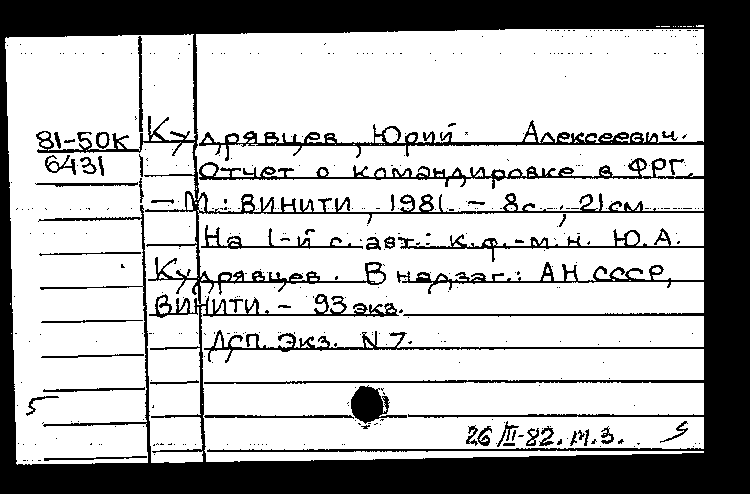 81-50К
6431
Кудрявцев, Юрий Алексеевич.
Отчет о командировке в ФРГ.
- М: ВИНИТИ, 1981. - 8с.; 21см.
На 1-й с. авт.: к.ф.-м.н. Ю.А.
Кудрявцев. В надзаг.: АН СССР,
ВИНИТИ. - 93 экз.
ДСП. Экз. N 7.
5
26/III-82. м.з.